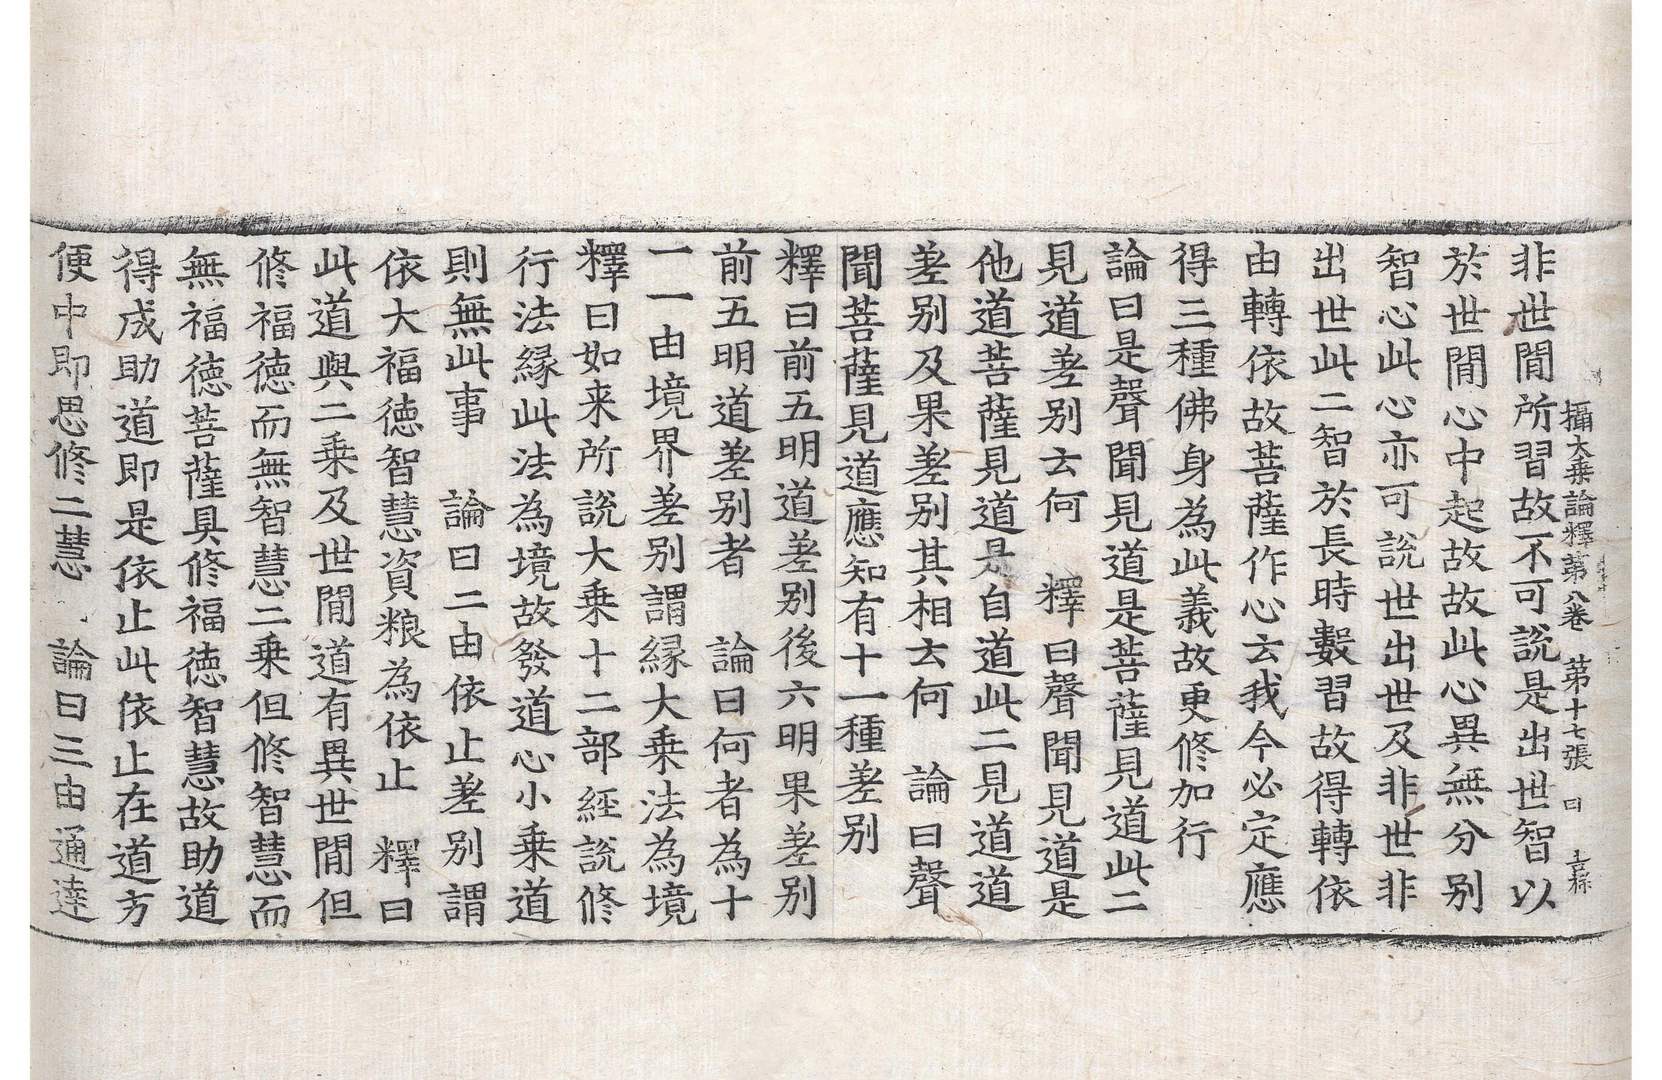 攝大乗論釋第八卷　第十七張　曰
非世間所習故不可說是出世智以
於世間心中起故故此心異無分别
智心此心亦可說世出世及非世非
出世此二智於長時數習故得轉依
由轉依故菩薩作心云我今必定應
得三種佛身為此義故更修加行
論曰是聲聞見道是菩薩見道此二
見道差别云何　釋曰聲聞見道是
他道菩薩見道是自道此二見道道
差别及果差别其相云何　論曰聲
聞菩薩見道應知有十一種差别
釋曰前五明道差别後六明果差别
前五明道差别者　論曰何者為十
一一由境界差别謂縁大乗法為境
釋曰如来所說大乗十二部經說修
行法縁此法為境故發道心小乗道
則無此事　論曰二由依止差别謂
依大福徳智慧資粮為依止　釋曰
此道與二乗及世間道有異世間但
修福徳而無智慧二乗但修智慧而
無福徳菩薩具修福徳智慧故助道
得成助道即是依止此依止在道方
便中即思修二慧　論曰三由通達